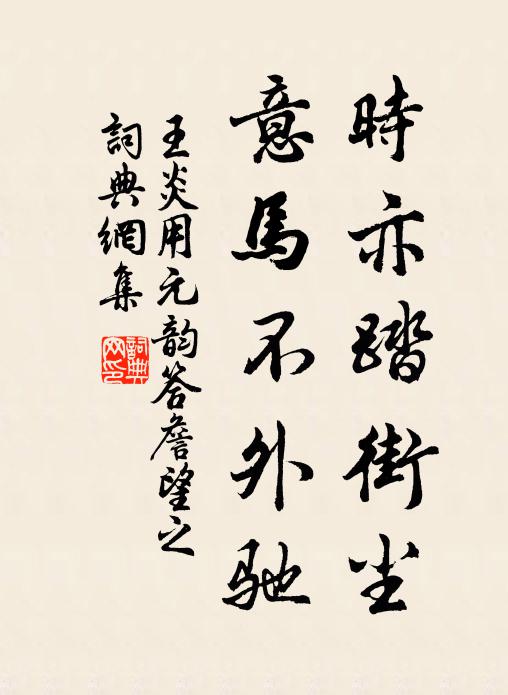 時亦踏街尘
意馬不外驰
王炎用元韵答詹望之
詞典網集
詞典网印